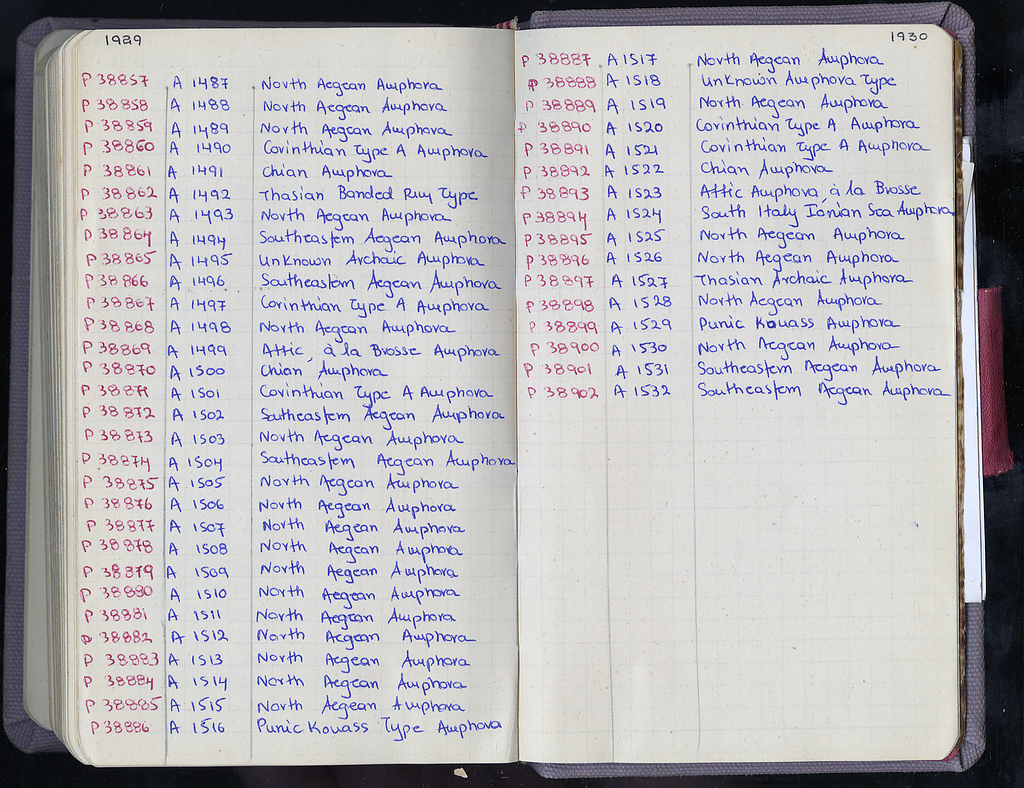 1929
P 38857 A 1487 North Aegean Amphora
P 38858 A 1488 North Aegean Amphora
P 38859 A 1489 North Aegean Amphora
P 38860 A 1490 Corinthian Type A Amphora
P 38861 A 1491 Chian Amphora
P 38862 A 1492 Thasian Banded Rim Type
P 38863 A 1493 North Aegean Amphora
P 38864 A 1494 Southeastern Aegean Amphora
P 38865 A 1495 Unknown Archaic Amphora
P 38866 A 1496 Southeastern Aegean Amphora
P 38867 A 1497 Corinthian Type A Amphora
P 38868 A 1498 North Aegean Amphora
P 38869 A 1499 Attic, à la Brosse Amphora
P 38870 A 1500 Chian Amphora
P 38871 A 1501 Corinthian Type A Amphora
P 38872 A 1502 Southeastern Aegean Amphora
P 38873 A 1503 North Aegean Amphora
P 38874 A 1504 Southeastern Aegean Amphora
P 38875 A 1505 North Aegean Amphora
P 38876 A 1506 North Aegean Amphora
P 38877 A 1507 North Aegean Amphora
P 38878 A 1508 North Aegean Amphora
P 38879 A 1509 North Aegean Amphora
P 38880 A 1510 North Aegean Amphora
P 38881 A 1511 North Aegean Amphora
P 38882 A 1512 North Aegean Amphora
P 38883 A 1513 North Aegean Amphora
P 38884 A 1514 North Aegean Amphora
P 38885 A 1515 North Aegean Amphora
P 38886 A 1516 Punic Kouass Type Amphora
1930
P 38887 A 1517 North Aegean Amphora
P 38888 A 1518 Unknown Amphora Type
P 38889 A 1519 North Aegean Amphora
P 38890 A 1520 Corinthian Type A Amphora
P 38891 A 1521 Corinthian Type A Amphora
P 38892 A 1522 Chian Amphora
P 38893 A 1523 Attic Amphora, à la Brosse
P 38894 A 1524 South Italy Ionian Sea Amphora
P 38895 A 1525 North Aegean Amphora
P 38896 A 1526 North Aegean Amphora
P 38897 A 1527 Thasian Archaic Amphora
P 38898 A 1528 North Aegean Amphora
P 38899 A 1529 Punic Kouass Amphora
P 38900 A 1530 North Aegean Amphora
P 38901 A 1531 Southeastern Aegean Amphora
P 38902 A 1532 Southeastern Aegean Amphora